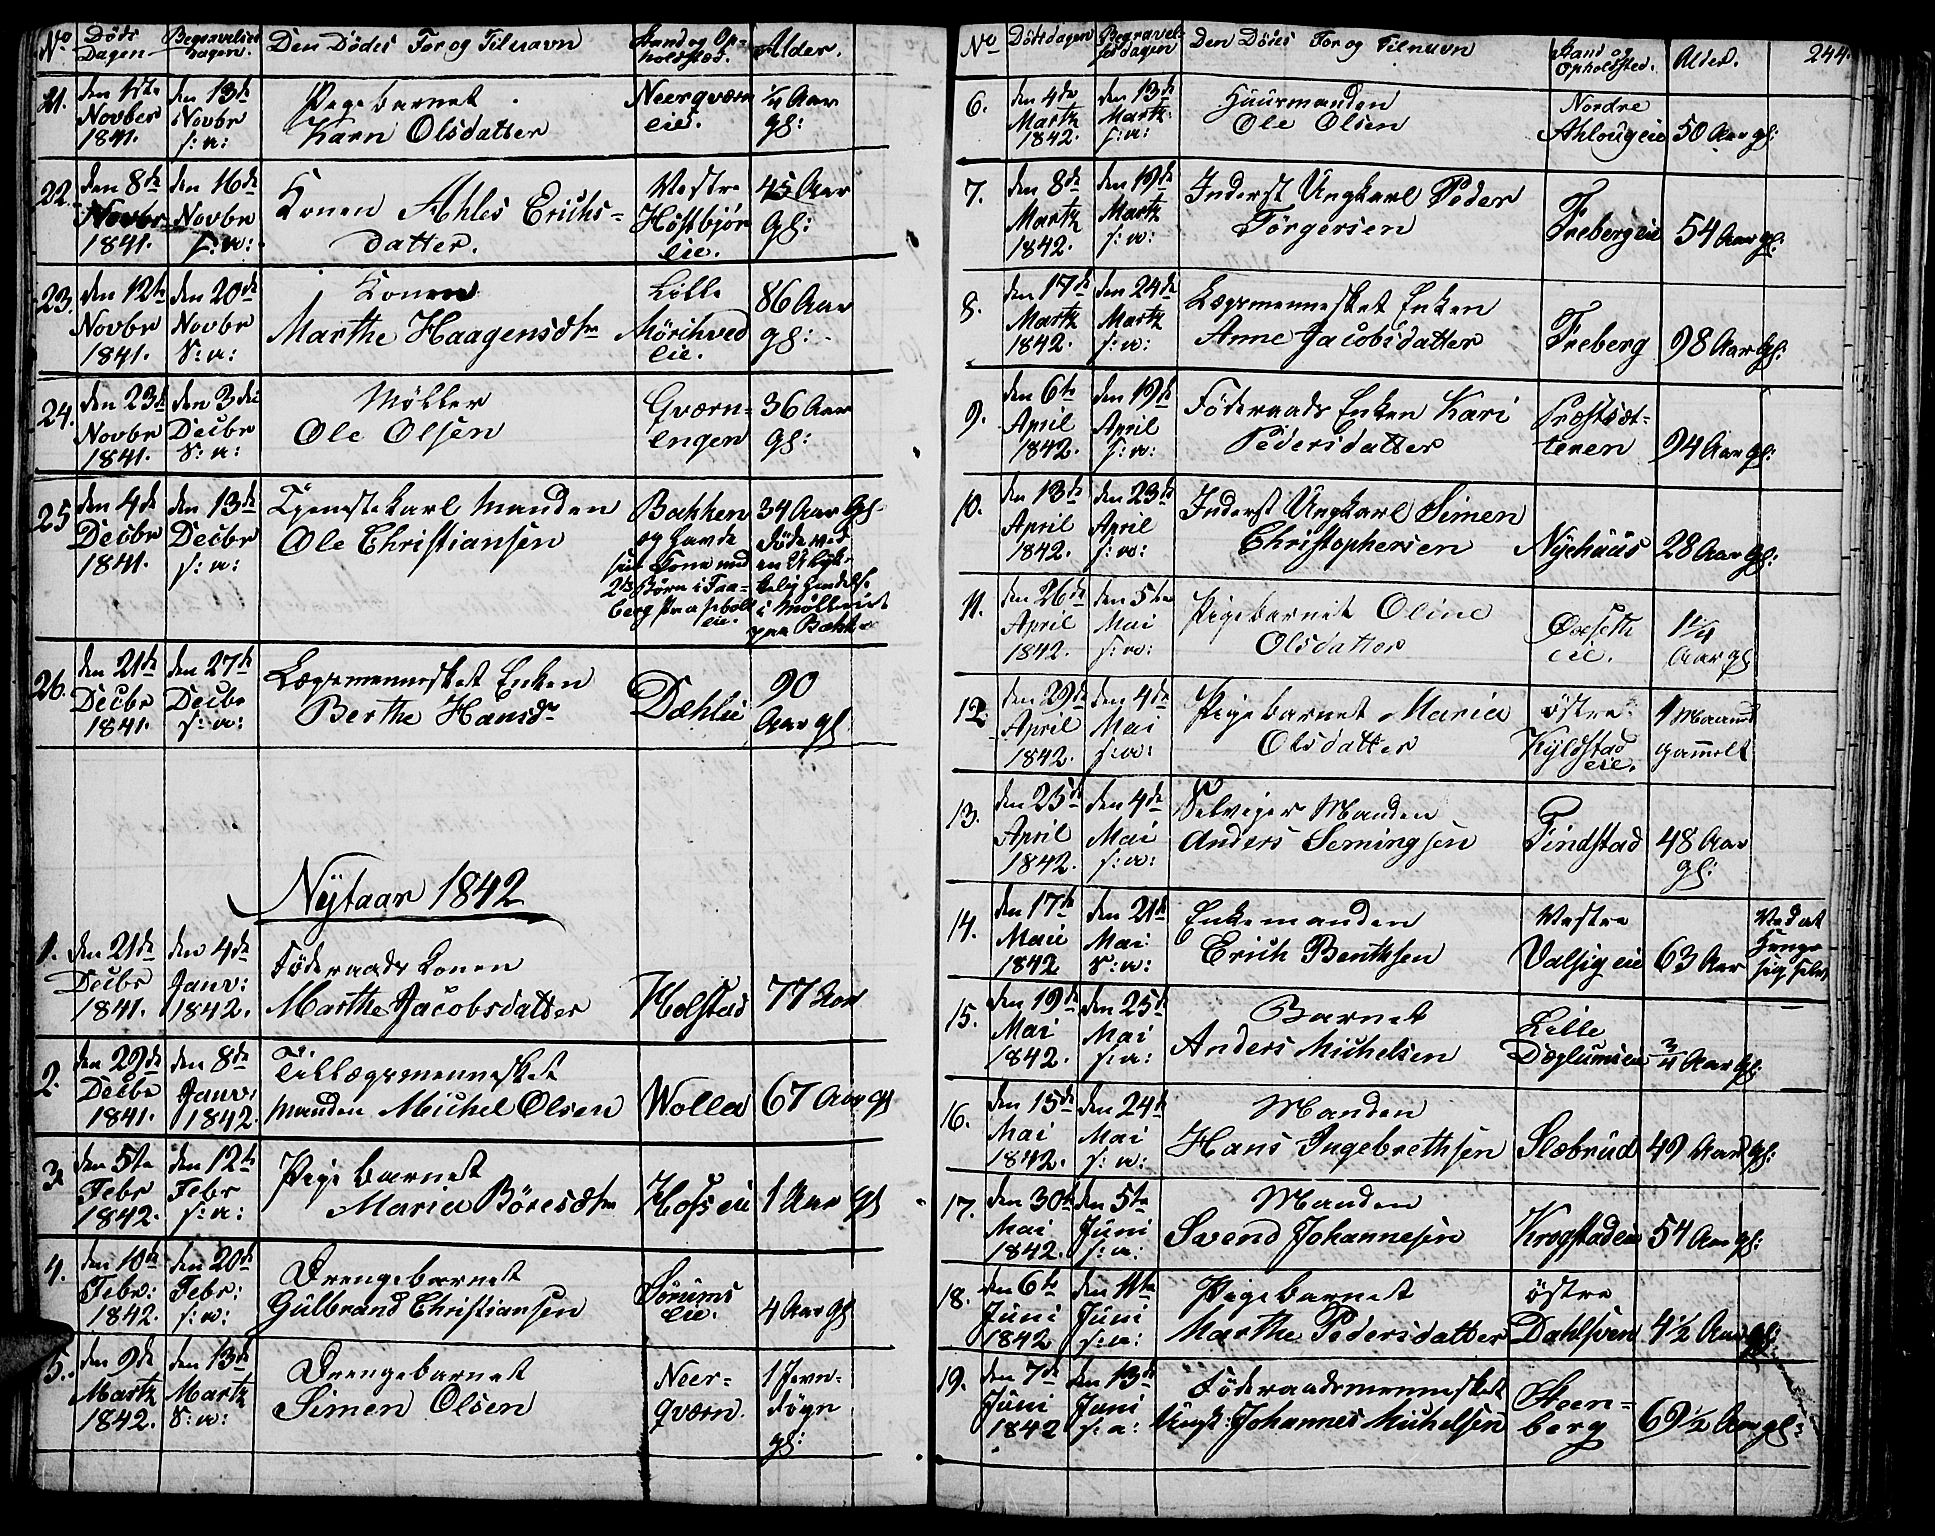 No
Døds
Dagen
Begravelses
Dagen.
Den Dödes For og Tilnavn
Stand og Op-
holdsted.
Alder.
21.
den 1ste
Novber
1841.
den 13de
Novbr
s: a:
Pigebarnet
Karn Olsdatter
Neerqværn
eie.
1/4 Aar
gl:
22.
den 8de
Novbr
1841.
den 16de
Novbr
s: a:
Konen Ahles Erichs-
datter.
Vestre
Höstbjör
eie.
45 Aar
gl:
23.
den 12te
Novbr
1841.
den 20de
Novbr
S: a:
Konen
Marthe Haagensdtr
Lille
Mörihved
eie.
86 Aar
gl:
24.
den 23de
Novbr
1841.
den 3die
Decbr
S: a:
Møller
Ole Olsen
Qværn-
engen
36 Aar
gl:
25
den 4de
Decbr
1841.
den 13de
Decbr
s: a:
Tjenestekarl Manden
Ole Christiansen
Bakken
og havde
sin Kone med
2de Börn i Fra-
berg Præstbolt
eie.
34 Aar gl.
döde ved
en Ulyk-
kelig Hendelse
i Mølleriet
paa Bakke
26.
den 21de
Decbr
1841.
den 27de
Decbr
s: a:
Lægsmennesket Enken
Berthe Hansdr
Dæhlie
90
Aar gl
Nytaar 1842
1.
den 21de
Decbr
1841.
den 4de
Janv:
1842.
Föderaads Konen
Marthe Jacobsdatter
Holstad
77 Aar
2.
den 29de
Decbr
1841.
den 8de
Janv:
1842.
Tillægsmennesket
Manden Michel Olsen
Wolla
67 Aar gl
3
den 5te
Febr
1842.
den 12te
Febr
s: a:
Pigebarnet
Maria Böresdtr
Hofs eie
1 Aar gl
4.
den 10de
Febr:
1842.
den 20de
Febr:
s: a:
Drengebarnet
Gulbrand Christiansen
Sörums
eie.
4 Aar gl
5.
den 9de
Martz
1842.
den 13de
Martz
S: a:
Drengebarnet
Simen Olsen
Neer-
qværn.
1 Jevn-
døgn
gl:
No
Dödsdagen
Begravel-
sesdagen
Den Dödes For og Tilnavn
Stand og
Opholdsted.
Alder.
244.
6.
den 4de
Martz
1842.
den 13de
Martz
s: a:
Huusmanden
Ole Olsen
Nordre
Ahlougeie
50 Aar gl:
7.
den 8de
Martz
1842.
den 19de
Martz
s: a:
Inderst Ungkarl Peder
Törgersen
Freberg eie
54 Aar gl:
8.
den 17de
Martz
1842.
den 24de
Martz
s: a:
Lægsmennesket Enken
Anne Jacobsdatter
Freberg
98 Aar gl:
9.
den 6te
April
1842.
den 19de
April
s: a:
Föderaads Enken Kari
Pedersdatter
Præstsæt-
teren
94 Aar gl:
10.
den 13de
April
1842.
den 23de
April
s: a:
Inderst Ungkarl Simen
Christophersen
Nyehuus
28 Aar gl:
11.
den 26de
April
1842.
den 5te
Mai
s: a:
Pigebarnet Oline
Olsdatter
Oxseth
eie.
1 1/4
Aar gl
12
den 29de
April
1842.
den 4de
Mai
s: a:
Pigebarnet Maria
Olsdatter
östre
Kyldstad
eie.
1 Maaned
gammelt
13.
den 25de
April
1842.
den 4de
Mai
s: a:
Selveier Manden
Anders Semingsen
Findstad
48 Aar
gl:
14.
den 17de
Maii
1842
den 21de
Mai
S: a:
Enkemanden
Erich Benthsen
Vestre
Valsig eie
63 Aar
Ved at
Henge
sig selv
15.
den 19de
Mai
1842.
den 25de
Mai
s: a:
Barnet
Anders Michelsen
Lille
Dæglums eie
3/4 Aar gl:
16.
den 15de
Mai
1842.
den 24de
Mai
s: a:
Manden
Hans Ingebrethsen
Slæbrud
49 Aar gl:
17.
den 30te
Mai
1842.
den 5te
Juni
s: a:
Manden
Svend Johannesen
Krogstadeie
54 Aar gl:
18.
den 6te
Juni
1842
den 11te
Juni
s: a:
Pigebarnet
Marthe Pedersdatter
östre
Dahlsven
4 1/2 Aar gl:
19.
den 7de
Juni
1842
den 13de
Juni
s: a:
Föderaadsmennesket
Ungk: Johannes Michelsen
Steen-
berg
69 1/2 Aar gl: